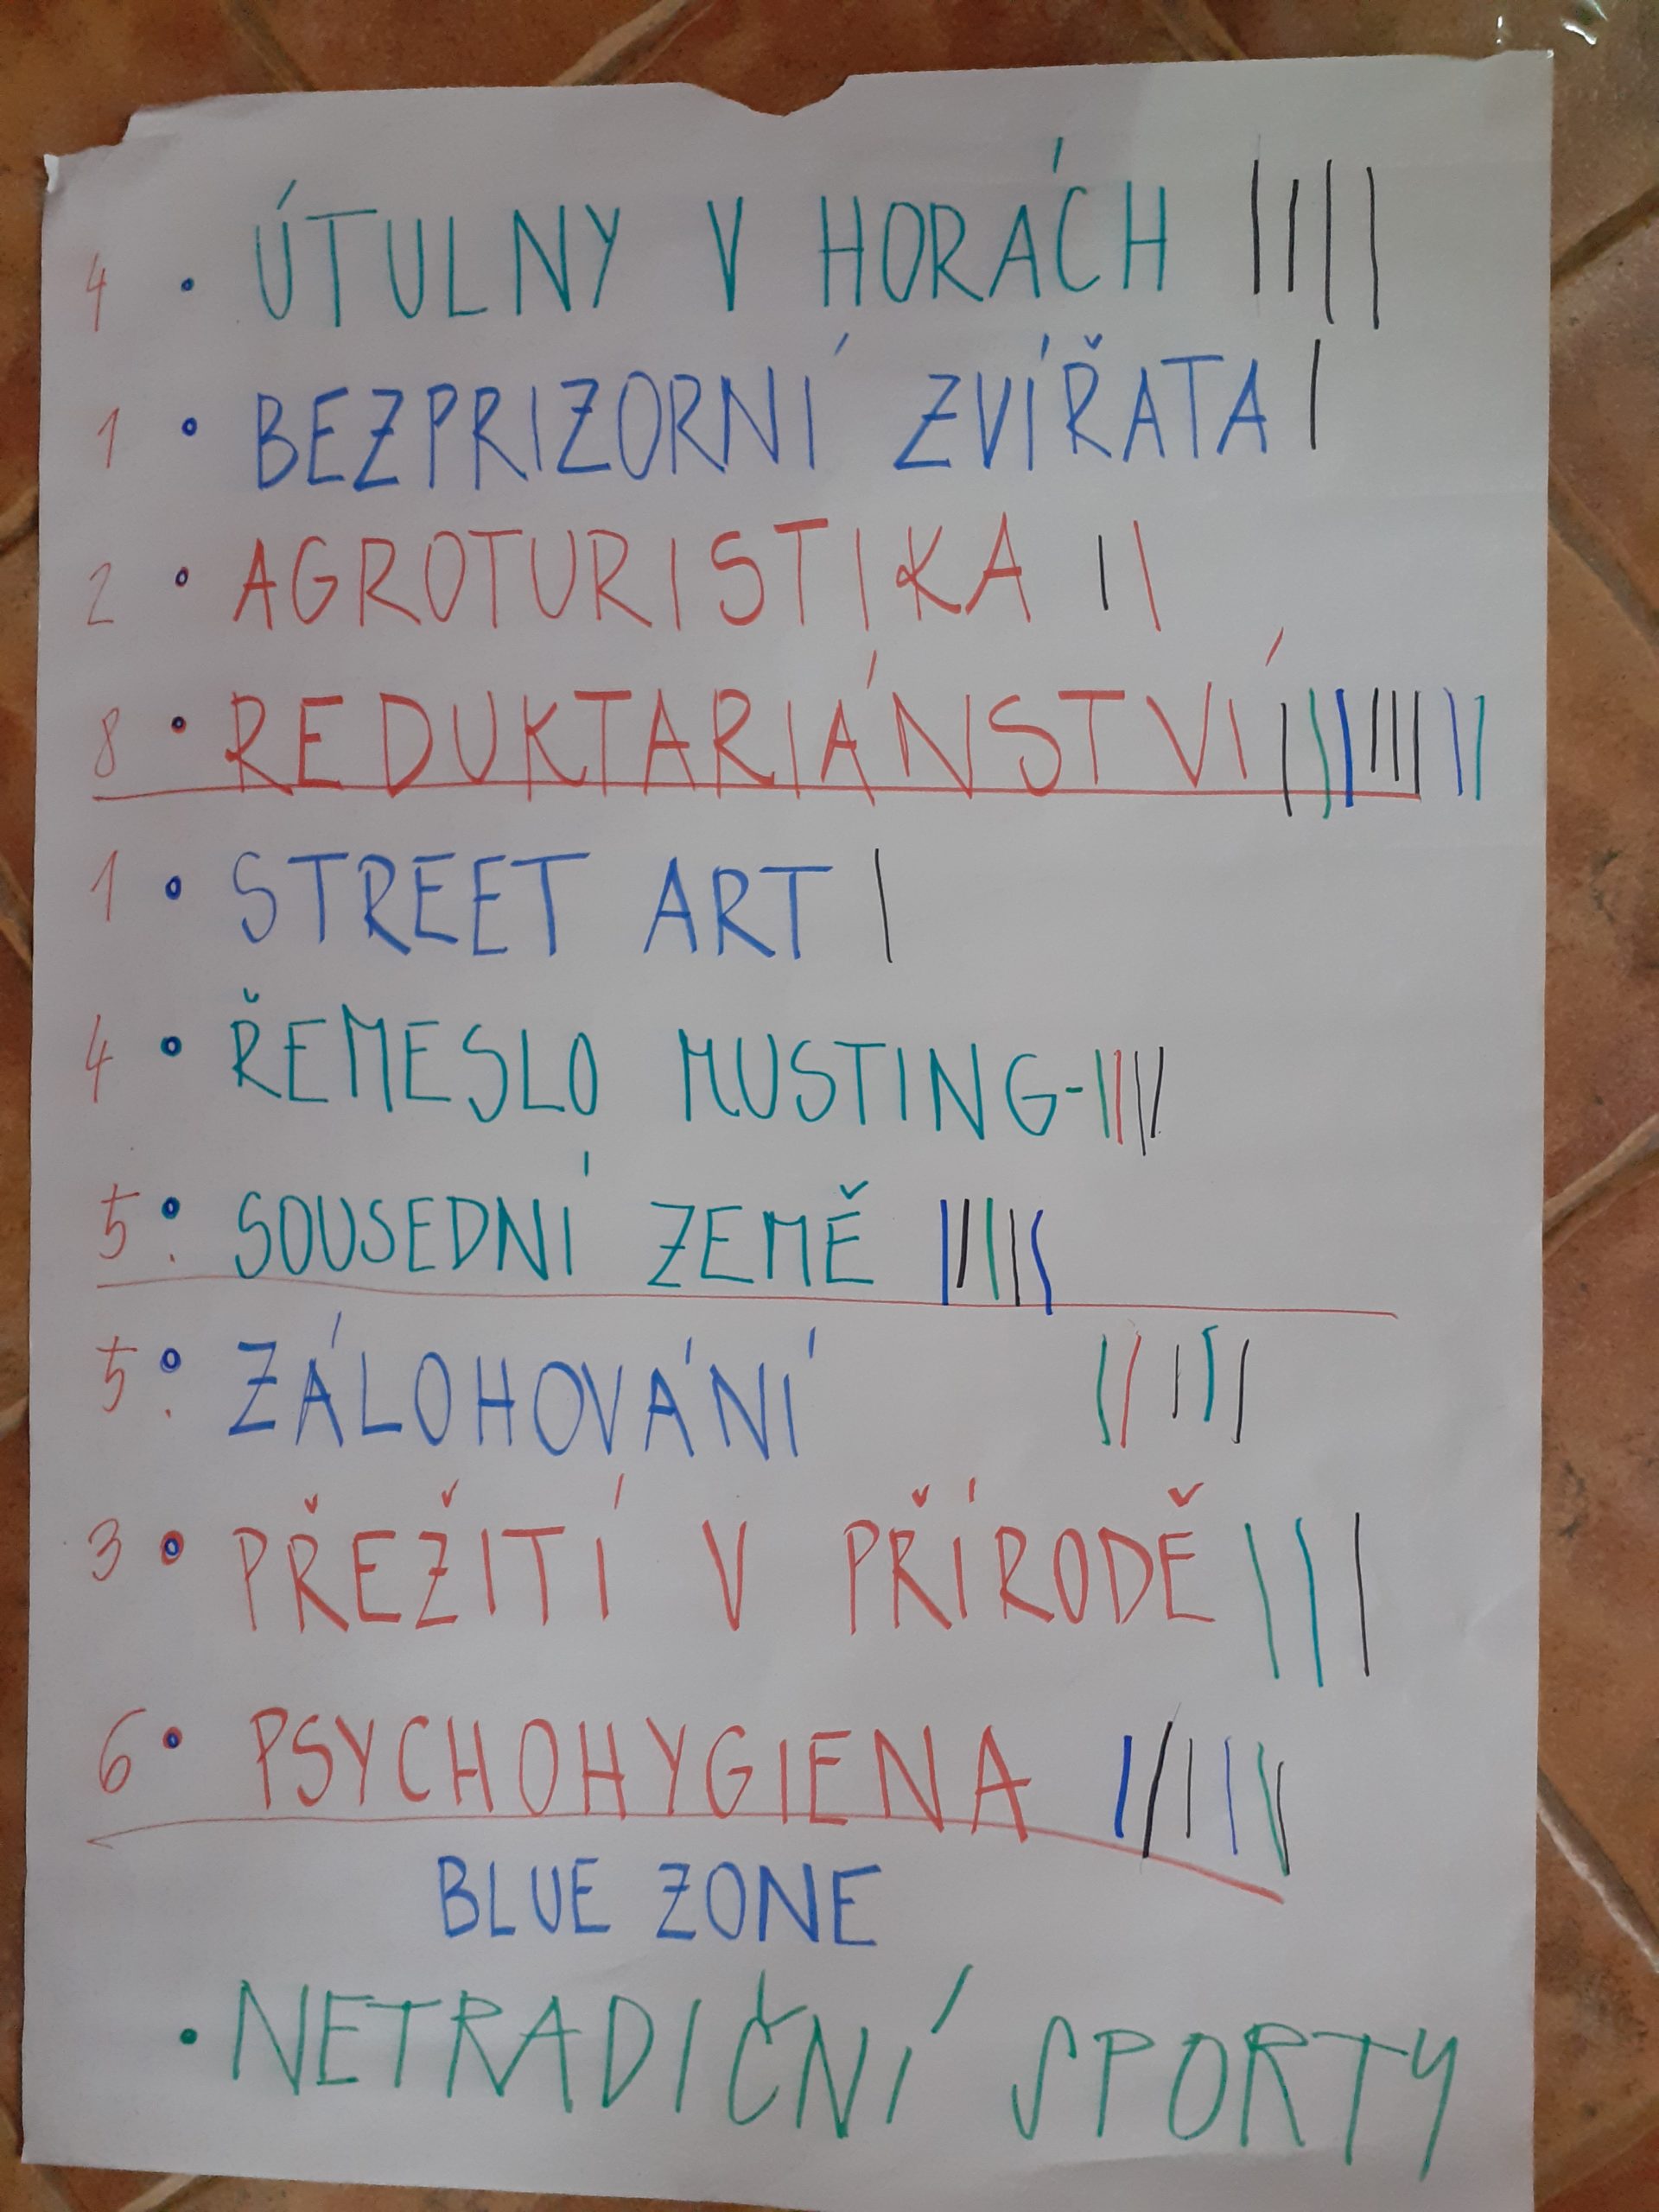 4 • ÚTULNY V HORÁCH ||||
1 • BEZPRIZORNÍ ZVÍŘATA |
2 • AGROTURISTIKA ||
8 • REDUKTARIÁNSTVÍ ||||||||
1 • STREET ART |
4 • ŘEMESLO MUSTING- ||||
5 • SOUSEDNÍ ZEMĚ |||||
5 • ZÁLOHOVÁNÍ |||||
3 • PŘEŽITÍ V PŘÍRODĚ |||
6 • PSYCHOHYGIENA ||||||
BLUE ZONE
• NETRADIČNÍ SPORTY